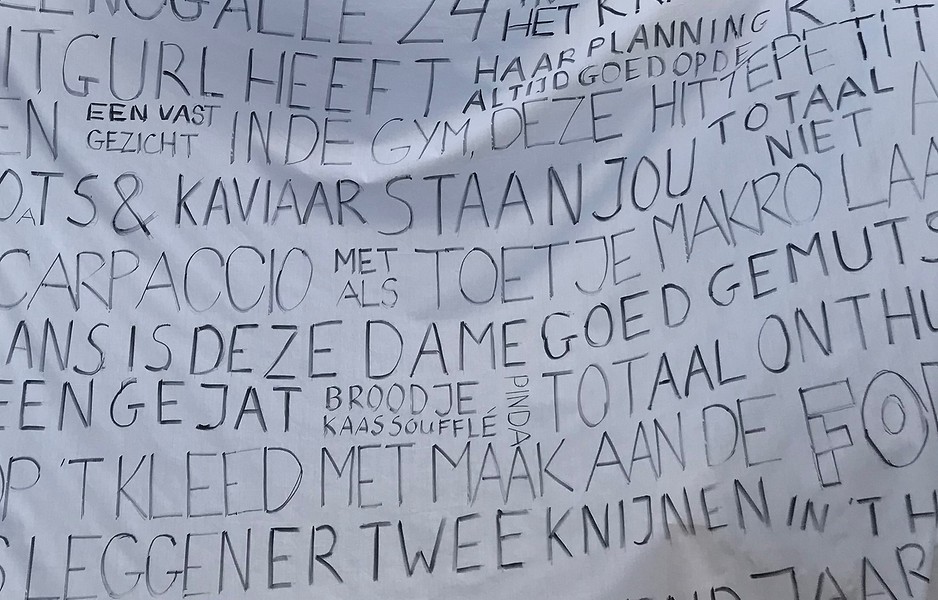 ALLE 24 HET
ITGURL HEEFT HAAR PLANNING ALTIJD GOED OP DE
EN EEN VAST GEZICHT IN DE GYM, DEZE HITTEPETIT
TOTAAL NIET
& KAVIAAR STAAN JOU
CARPACCIO MET ALS TOETJE MAKRO LAA
ANS IS DEZE DAME GOED GEMUTS
EEN GEJAT BROODJE KAASSOUFFLÉ PINDA TOTAAL ONTHU
OP 'T KLEED MET MAAK AAN DE FOE
S LEGGEN ER TWEE KNIJNEN IN 'T H
JAAR